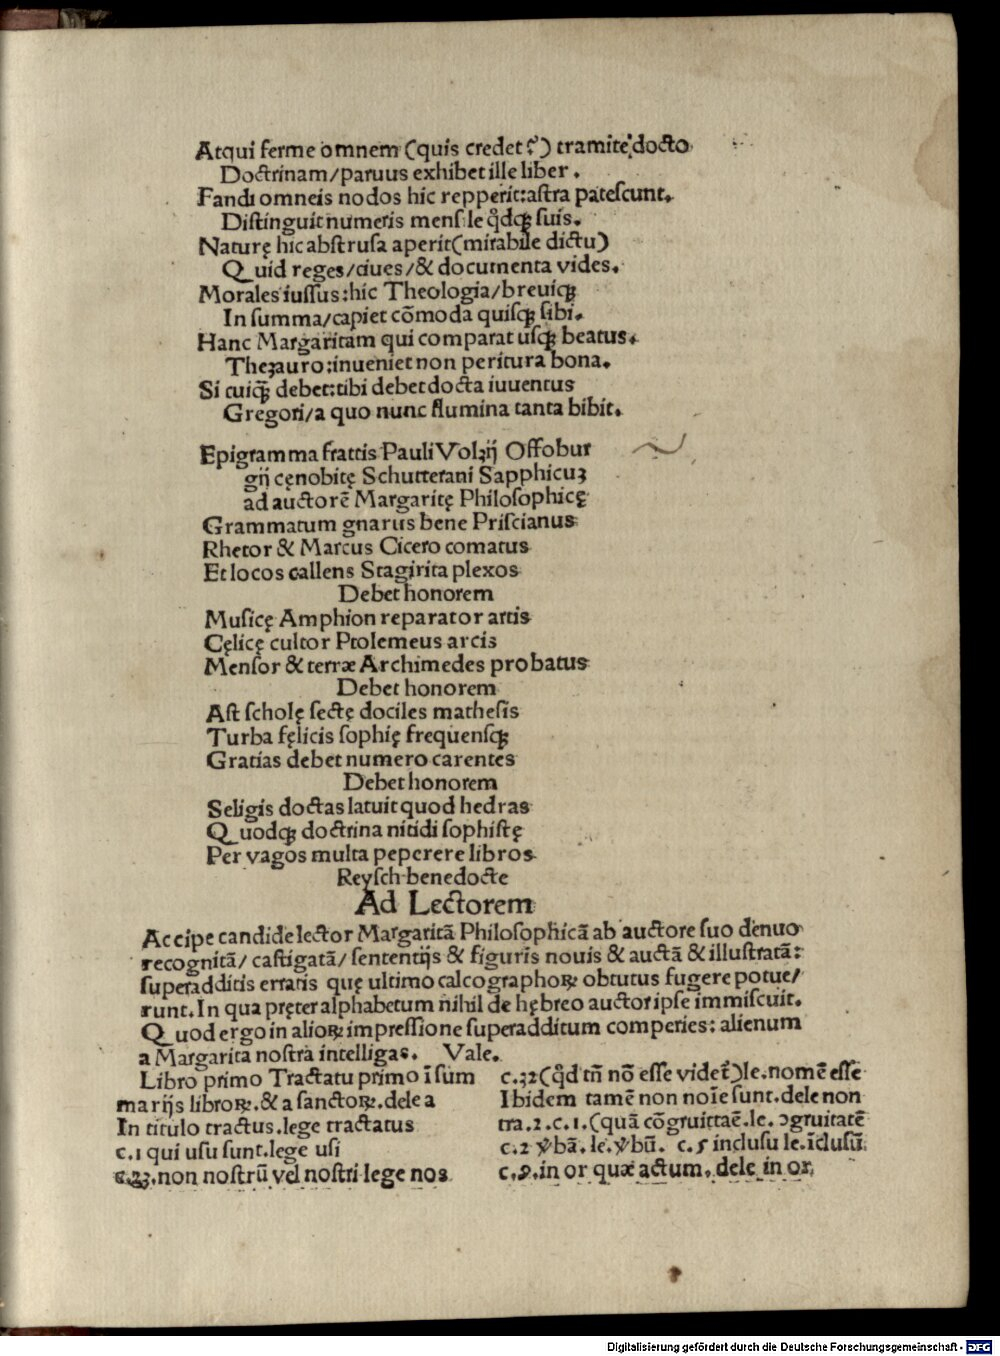 Atqui ferme omnem (quis credet?) tramite docto
Doctrinam/paruus exhibet ille liber.
Fandi omneis nodos hic repperit:astra patescunt.
Distinguit numeris mens le qd̄qꝫ suis.
Naturę hic abstrusa aperit(mirabile dictu)
Quid reges/ciues/& documenta vides.
Morales iussus:hic Theologia/breuiqꝫ
In summa/capiet cōmoda quisqꝫ sibi.
Hanc Margaritam qui comparat usqꝫ beatus.
Thezauro:inueniet non peritura bona.
Si cuiqꝫ̄ debet:tibi debet docta iuuentus
Gregori/a quo nunc flumina tanta bibit.
Epigramma fratris Pauli Volzij Offobur
gij cęnobitę Schutterani Sapphicuꝫ
ad auctorē Margaritę Philosophicę
Grammatum gnarus bene Priscianus
Rhetor & Marcus Cicero comatus
Et locos callens Stagirita plexos
Debet honorem
Musicę Amphion reparator artis
Cęlicę cultor Ptolemeus arcis
Mensor & terræ Archimedes probatus
Debet honorem
Ast scholę sectę dociles mathesis
Turba fęlicis sophię frequensqꝫ
Gratias debet numero carentes
Debet honorem
Seligis doctas latuit quod hedras
Quodqꝫ doctrina nitidi sophistę
Per vagos multa peperere libros
Reysch benedocte
Ad Lectorem
Accipe candide lector Margaritā Philosophicā ab auctore suo denuo
recognitā/ castigatā/ sententijs & figuris nouis & auctā & illustratā:
superadditis erratis quę ultimo calcographoꝝ obtutus fugere potue/
runt. In qua pręter alphabetum nihil de hębreo auctor ipse immiscuit.
Quod ergo in alioꝝ impressione superadditum comperies: alienum
a Margarita nostra intelligas. Vale.
Libro primo Tractatu primo ī sum
marijs libroꝝ.& a sanctoꝝ.dele a
In titulo tractus.lege tractatus
c.1 qui usu sunt.lege usi
c.23.non nostrū vel nostri lege nos
c.32(qd̄ tn̄ nō esse videt᷑)le.nomē esse
Ibidem tamē non noīe sunt.dele non
tra.2.c.1.(quā cōgruittaē.le.ɔgruitatē
c.2 v̔bā.le.v̔bū. c.5 inclusu le.īclusū
c.9.in or quæ actum.dele in or
Digitalisierung gefördert durch die Deutsche Forschungsgemeinschaft - DFG